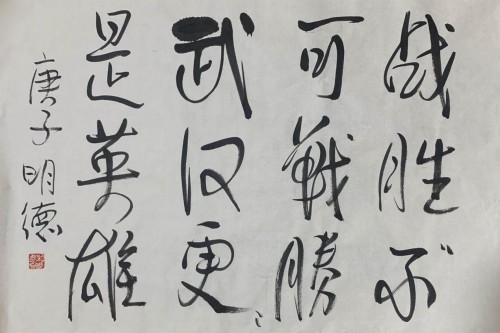 战胜不
可戰勝
武汉更〻
是英雄
庚子明德